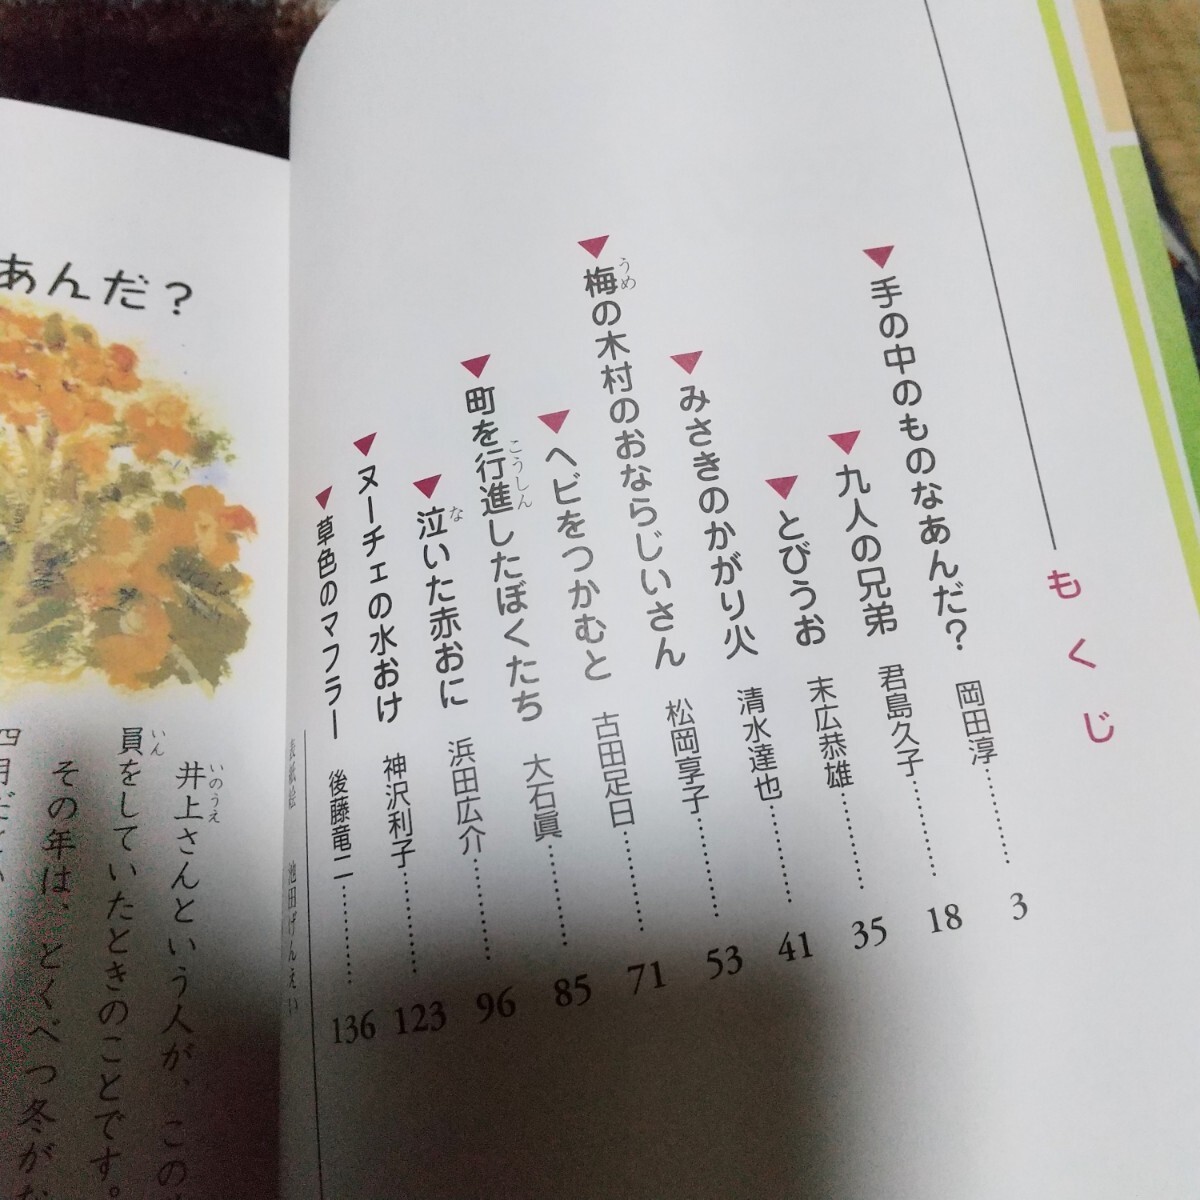 もくじ
手の中のものなあんだ? 岡田淳………3
九人の兄弟 君島久子………18
とびうお 末広恭雄………35
みさきのかがり火 清水達也………41
梅の木村のおならじいさん 松岡享子………53
うめ
ヘビをつかむと 古田足日………71
町を行進したぼくたち 大石眞………85
こうしん
泣いた赤おに 浜田広介………96
な
ヌーチェの水おけ 神沢利子………123
草色のマフラー 後藤竜二………136
表紙絵 池田げんえい
あんだ?
井上さんという人が、この
いのうえ
員をしていたときのことです。
いん
その年は、とくべつ冬がな
四月だと